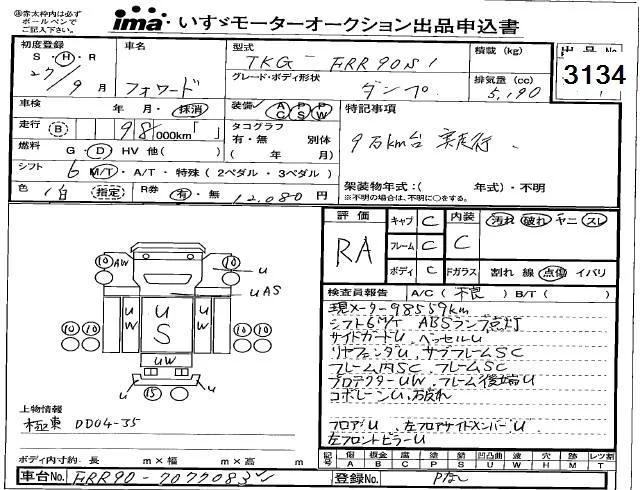 ㊟赤太枠内は必ず
ボールペンで
ご記入下さい。
ima・いすゞモーターオークション出品申込書
初度登録 車名 型式 積載 (kg) 出品No
S・H・R フォワード TKG-FRR90S1 3134
27/9月 グレード・ボディ形状 ダンプ 排気量 (cc) 5,190
車検 年 月・抹消 装備 AC PS PW 特記事項
走行 B 98,000km「 」 タコグラフ 有・無 別体 9万km台 実走行.
燃料 G・D HV 他( ) ( 年 月)
シフト 6 M/T・A/T・特殊 (2ペダル・3ペダル)
色 白 指定 R券 有・無 12,080円
架装物年式:( 年式)・不明
※不明の場合は、不明に○をする。
評価 キャブ C 内装 汚れ 破れ ヤニ スレ
RA フレーム C C
ボディ C Fガラス 割れ 線 点傷 イバリ
検査員報告 A/C(不良) B/T( )
現メーター98559km
シフト6M/T ABSランプ点灯
サイドガードU ベッセルU
リヤフェンダU、サブフレームSC
フレーム内SC フレームSC
プロテクターUW、フレーム後端U
コボレーンU、
フロアU 左フロアサイドメンバーU
左フロントピラーU
10 AW 10 U
UAS
UW U S UW
10 10 10 10
UW
U 15 U
上物情報
極東 DD04-35
ボディ内寸約・長 m×幅 m×高 m
記号 傷 板金 腐 塗 凹凸曲 波 穴 跡 レツ割
A B C P S U W H M T
車台No. FRR90-7077083 登録No. Pなし